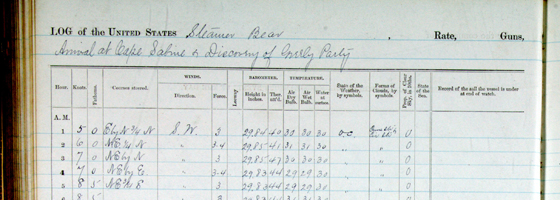 LOG OF THE UNITED STATES Steamer Bear , Rate, Guns,
Arrival at Cape Sabine & Discovery of Greely Party
WINDS. BAROMETER. TEMPERATURE.
Hour. Knots. Fathoms. Courses steered. Direction. Force. Leeway Height in inches. Ther. att'd. Air Dry Bulb. Air Wet Bulb. Water at surface. State of the Weather, by symbols. Forms of Clouds, by symbols. Prop. of Clear Sky, in 10ths. State of the Sea. Record of the sail the vessel is under at end of watch.
A. M.
1 5 0 E by N ¾ N S. W. 3 29.84 40 30 30 30 o.c. 0
2 6 0 N.E. ¾ N " 3-4 29.85 41 31 31 30 " " 0
3 7 0 N E by N " 3 29.85 47 30 30 30 " " 0
4 7 0 N E by E " 3-4 29.83 44 29 29 30 " " 0
5 8 5 N E ¾ E " 3 29.83 44 29 30 30 " 0